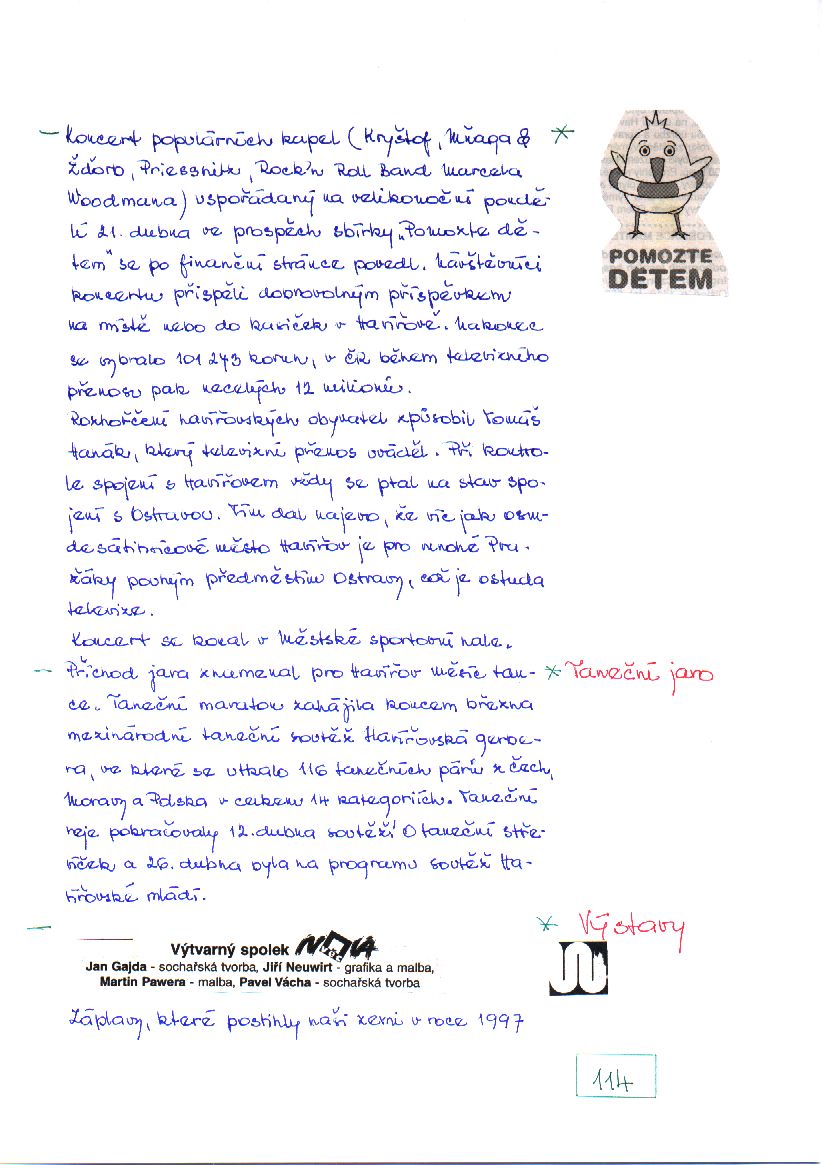 Koncert populárních kapel (Kryštof, Mňaga &
Žďorp, Priessnitz, Rock'n Roll Band Marcela
Woodmana) uspořádaný na velikonoční pondě-
lí 21. dubna ve prospěch sbírky „Pomozte dě-
tem" se po finanční stránce povedl. Návštěvníci
koncertu přispěli dobrovolným příspěvkem
na místě nebo do kasiček v Havířově. Nakonec
se vybralo 101 243 korun, v ČR během televizního
přenosu pak necelých 12 milionů.
POMOZTE
DĚTEM
Rozhořčení havířovských obyvatel způsobil Tomáš
Hanák, který televizní přenos uváděl. Při kontro-
le spojení s Havířovem vždy se ptal na stav spo-
jení s Ostravou. Tím dal najevo, že víc jak osm-
desátitisícové město Havířov je pro mnohé Pra-
žáky pouhým předměstím Ostravy, což je ostuda
televize.
Koncert se konal v Městské sportovní hale.
Příchod jara znamenal pro Havířov měsíc tan-
ce. Taneční maraton zahájila koncem března
mezinárodní taneční soutěž Havířovská gerbe-
ra, ve které se utkalo 116 tanečních párů z Čech,
Moravy a Polska v celkem 14 kategoriích. Taneční
reje pokračovaly 12. dubna soutěží O taneční stře-
víček a 26. dubna byla na programu soutěž Ha-
vířovské mládí.
Taneční jaro
Výstavy
Výtvarný spolek NOVA
Jan Gajda - sochařská tvorba, Jiří Neuwirt - grafika a malba,
Martin Pawera - malba, Pavel Vácha - sochařská tvorba
Záplavy, které postihly naši zemi v roce 1997
114